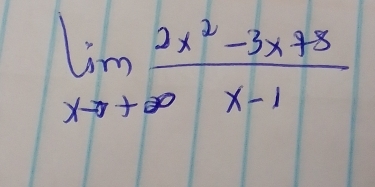 lim 2x² -3x+8
x→+∞ x-1